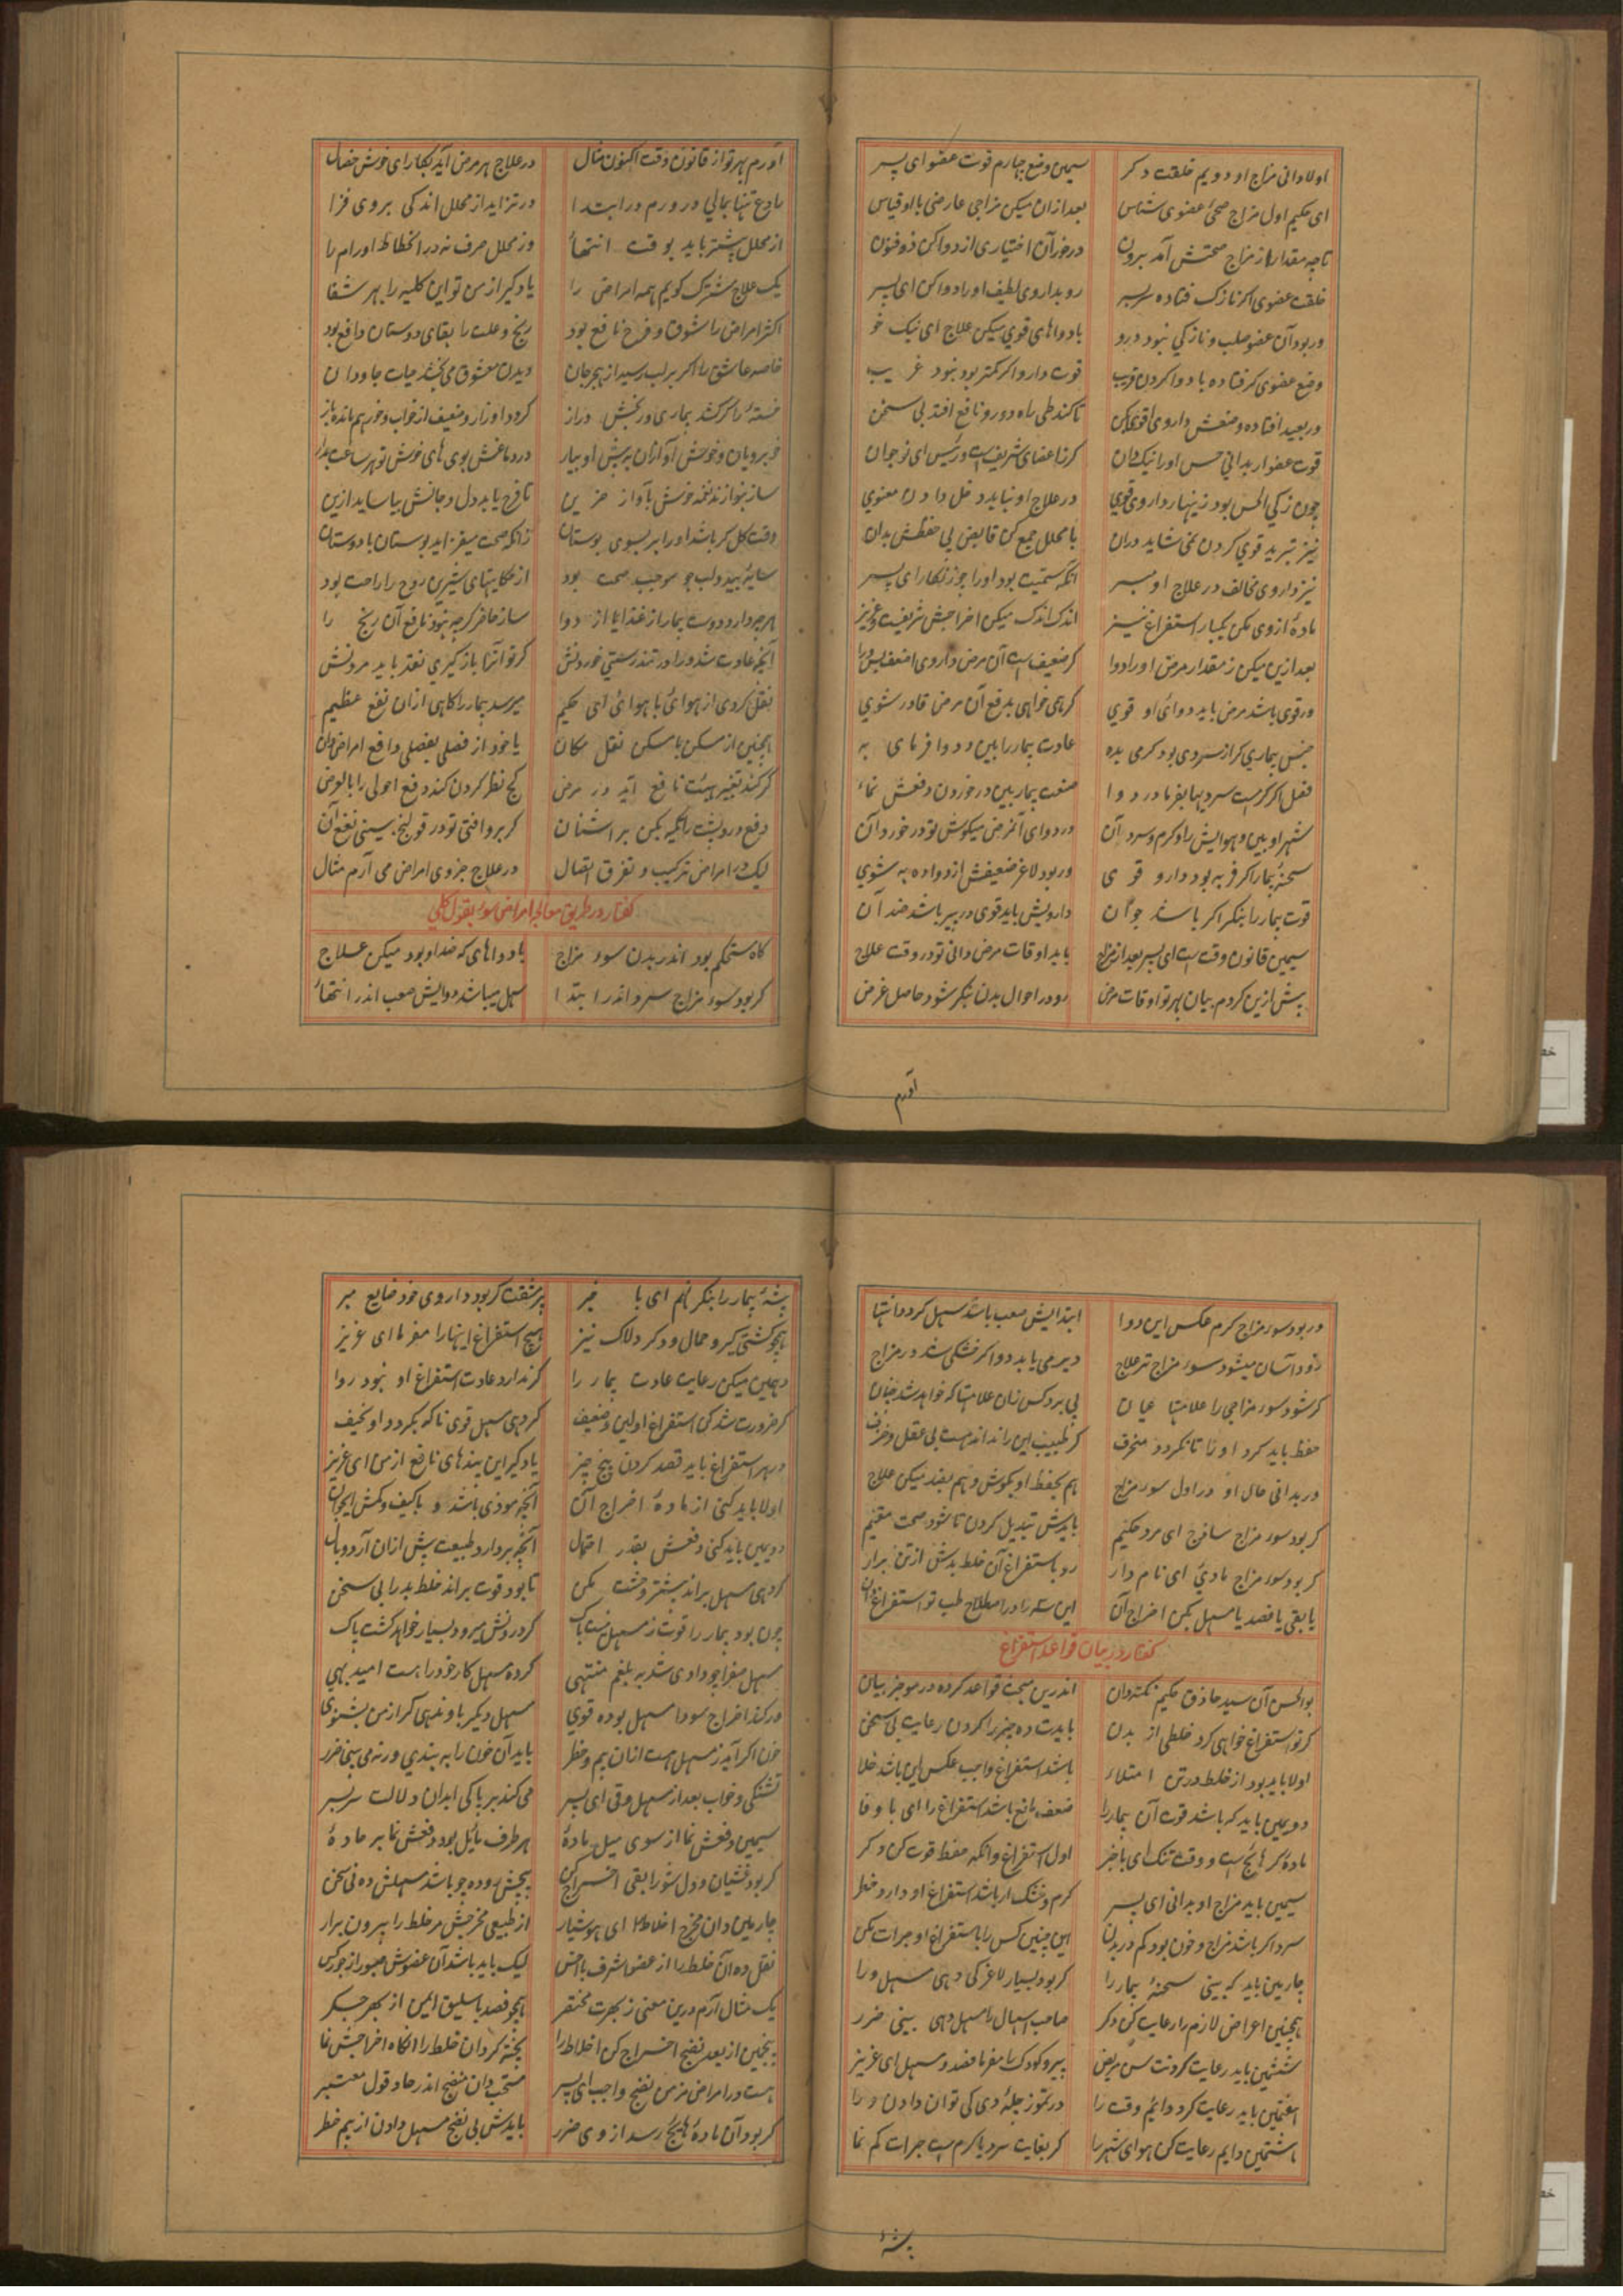 اولا دانی مزاج او دویم خلقت دکر سیمین وضع چهارم قوت عضو ای پسر
ای حکیم اول مزاج صحی عضوی شناس بعد ازان میکن مزاجی عارضی با او قیاس
تا چه مقدار از مزاج صحتش آمد برون درخور آن اختیاری از دوا کن ذوفنون
خلقت عضوی اکر نازک فتاده سربسر رو بداروی لطیف او را دوا کن ای پسر
ور بود آن عضو صلب و نازکی نبود درو با دواهای قوی میکن علاج ای نیک خو
وضع عضوی کر فتاده با دوا کردن قریب قوت دارو اکر کمتر بود نبود غریب
ور بعید افتاده وضعش داروی اقوی کن تا کند طی راه دور و نافع افتد بی سخن
قوت عضو ار بدانی حس او را نیک دان کر ز اعضای شریفست و رئیس ای نوجوان
چون زکی الحس بود زینهار داروی قوی در علاج او نباید دخل دادن معنوی
نیز تبرید قوی کردن نمی شاید دران با محلل جمع کن قابض پی حفظش بدان
نیز داروی مخالف در علاج او مبر آنکه سمیت بود او را چو زنکار ای پسر
مادهٔ از وی مکن یکبار استفراغ نیز اندک اندک میکن اخراجش شریفست و عزیز
بعد ازین میکن ز مقدار مرض او را دوا کر ضعیفست آن مرض داروی اضعف بس ورا
ور قوی باشد مرض باید دوائی او قوی کر همی خواهی بدفع آن مرض قادر شوی
جنس بیماری کر از سردی بود کرمی بده عادت بیمار را بین و دوا فرمای به
فصل اکر کرمست سردیها بفرما در دوا صنعت بیمار بین در خوردن و فعش نما
شهر او بین و هوایش را و کرم و سرد آن در دوای آنمرض میکوش تو در خورد آن
سحنهٔ بیمار اکر فربه بود دارو قوی ور بود لاغر ضعیفش از دوا ده به شوی
قوت بیمار را بنکر اکر باشد جوان دارویش باید قوی در پیر باشد ضد آن
سیمین قانون وقت است ای پسر بعد از مزاج باید اوقات مرض دانی تو در وقت علاج
پیش ازین کردم بیان بهر تو اوقات مرض رو در احوال بدن بنکر شود حاصل غرض
آورم
آورم بهر تو از قانون وقت اکنون مثال در علاج هر مرض آید بکار ای خوش خصال
رادع تنها بمالی در ورم در ابتدا در تزاید از محلل اندکی بروی فزا
از محلل بیشتر باید بوقت انتها وز محلل صرف نه در انحطاط اورام را
یک علاج مشترک کویم همه امراض را یاد کیر از من تو این کلیه را بهر شفا
اکثر امراض را شوق و فرح نافع بود رنج و علت را بقای دوستان دافع بود
خاصه عاشق را اکر بر لب رسید از هجر جان دیدن معشوق می بخشد حیات جاودان
خستهٔ را کر کشد بیماری و رنجش دراز کردد او زار و ضعیف از خواب و خور هم مانده باز
خوبرویان و خوش آوازان به پیش او بیار در دماغش بوی های خوش تو هر ساعت بدار
ساز بنوازند نغمه خوش بآواز حزین تا فرح یابد دل و جانش بیاساید ازین
وقت کل کر باشد او را بر بسوی بوستان زانکه صحت میفزاید بوستان با دوستان
سایهٔ بید و لب جو موجب صحت بود از حکایتهای شیرین روح را راحت بود
هر چه دارد دوست بیمار از غذا یا از دوا ساز حاضر کرچه نبود نافع آن رنج را
آنچه عادت شد ورا در تندرستی خوردنش کر تو آنرا باز کیری نقد باید مردنش
نقل کردی از هوائی با هوائی ای حکیم میرسد بیمار را کاهی ازان نفع عظیم
همچنین از مسکن با مسکن نقل مکان یا خود از فصلی بفصلی دافع امراض دان
کر کند تغییر هیئت نافع آید در مرض کج نظر کردن کند دفع احولی را بالعرض
دفع درد پشت را تکیه بکن بر اشنان کر بروافتی تو در قولنج بینی نفع آن
لیک در امراض ترکیب و تفرق اتصال در علاج جزوی امراض می آرم مثال
کفتار در طریق معالجه امراض سوء بقول کلی
کاه مستحکم بود اندر بدن سوء مزاج با دواهای که ضد او بود میکن علاج
کر بود سوء مزاج سرد اندر ابتدا سهل میباشد دوایش صعب اندر انتها
ور بود سوء مزاج کرم عکس این دوا ابتدایش صعب باشد سهل کردد انتها
زود آسان میشود سوء مزاج تر علاج دیر می یابد دوا کر خشکی شد در مزاج
کر شود سوء مزاجی را علامتها عیان پی برد کس زان علامتها که خواهد شد چنان
حفظ باید کرد او را تا نکردد منحرف کر طبیب این را نداند هست بی عقل و خرف
ور بدانی حال او در اول سوء مزاج هم بحفظ او بکوش و هم بضد میکن علاج
کر بود سوء مزاج ساذج ای مرد حکیم بایدش تبدیل کردن تا شود صحت مقیم
کر بود سوء مزاج مادی ای نامدار رو باستفراغ آن خلط بدش از تن برار
یا بقی یا فصد یا مسهل بکن اخراج آن این سه را در اصطلاح طب تو استفراغ دان
کفتار در بیان قواعد استفراغ
بوالحسن آن سید حاذق حکیم نکته دان اندرین مبحث قواعد کرده در موجز بیان
کر تو استفراغ خواهی کرد خلطی از بدن بایدت ده چیز را کردن رعایت بی سخن
اولا باید بود از خلط در تن امتلاء باشد استفراغ واجب عکس این باشد خلا
دویمین باید که باشد قوت آن بیمار را ضعف مانع باشد استفراغ را ای با وفا
ماده کر هائج است و وقت تنک ای باخبر اول استفراغ وانکه حفظ قوت کن دکر
سیمین باید مزاج او بدانی ای پسر کرم و خشک ار باشد استفراغ او دارد خطر
سرد اکر باشد مزاج و خون بود کم در بدن این چنین کس را باستفراغ او جرات مکن
چارمین باید که بینی سحنهٔ بیمار را کر بود بسیار لاغر کی دهی مسهل ورا
پنجمین اعراض لازم را رعایت کن دکر صاحب اسهال را مسهل دهی بینی ضرر
ششمین باید رعایت کردنت سن مریض پیر و کودک را مفرما فصد و مسهل ای عزیز
هفتمین باید رعایت کرد دائم وقت را در تموز چلهٔ دی کی توان دادن ورا
هشتمین دایم رعایت کن هوای شهر را کر بغایت سرد یا کرم ست جرات کم نما
پیشهٔ
پیشهٔ بیمار را بنکر نهم ای با خبر پر مشقت کر بود داروی خود ضایع مبر
همچو کشتی کیر و حمال و دکر دلاک نیز هیچ استفراغ اینها را مفرما ای عزیز
دهمین میکن رعایت عادت بیمار را کر ندارد عادت استفراغ او نبود روا
کر ضرورت شد کن استفراغ او لین و ضعیف کر دهی مسهل قوی ناکه بکردد او نحیف
در هر استفراغ باید قصد کردن پنج چیز یاد کیر این پندهای نافع از من ای عزیز
اولا باید کنی از مادهٔ اخراج آن آنچه موذی باشد و با کیف و کمش ایجوان
دویمین باید کنی دفعش بقدر احتمال آنچه بردارد طبیعت بیش ازان آرد وبال
کر دهی مسهل براند بیشتر وحشت مکن تا بود قوت براند خلط بد را بی سخن
چون بود بیمار را قوت ز مسهل نیست باک کر درونش میرود بسیار خواهد کشت پاک
مسهل صفرا چو دادی شد به بلغم منتهی کرده مسهل کار خود را هست امید بهی
ور کند اخراج سودا مسهل بوده قوی مسهل دیکر باو ندهی کر از من بشنوی
خون اکر آید ز مسهل هست ازان بیم و خطر باید آن خون را به بندی ورنه می بینی ضرر
تشنکی و خواب بعد از مسهل و قی ای پسر می کند بر پاکی ابدان دلالت سربسر
سیمین دفعش نما از سوی میل مادهٔ هر طرف مایل بود دفعش نما بر مادهٔ
کر بود غثیان و دل شورا بقی اخراج کن پیچش روده چو باشد مسهلش ده بی سخن
چارمین دان مخرج اخلاط ای هوشیار از طبیعی مخرجش مر خلط را بیرون برار
نقل ده آن خلط را از عضو اشرف با اخس لیک باید باشد آن عضوش مجاور از جورکس
یک مثال آرم درین معنی ز بهرت مختصر همچو فصد باسلیق ایمن از بهر جکر
پنجمین از بعد نضج اخراج کن اخلاط را پخته کردان خلط را انکاه اخراجش نما
هست در امراض مزمن نضج واجب ای پسر مستحب دان نضج اندر حاد قول معتبر
کر بود آن مادهٔ هائج رسد از وی ضرر بایدش بی نضج مسهل دادن از بیم خطر